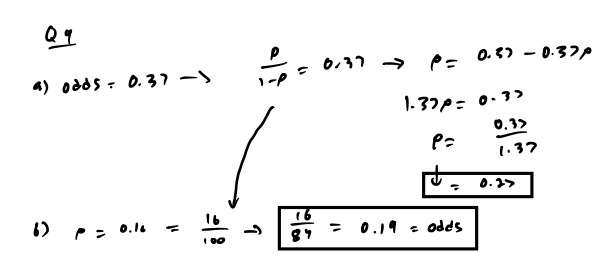 Q9
a) odds = 0.37 → p/(1-p) = 0.37 → p = 0.37 - 0.37p
1.37p = 0.37
p = 0.37/1.37
↓ = 0.27
b) p = 0.16 = 16/100 → 16/84 = 0.19 = odds